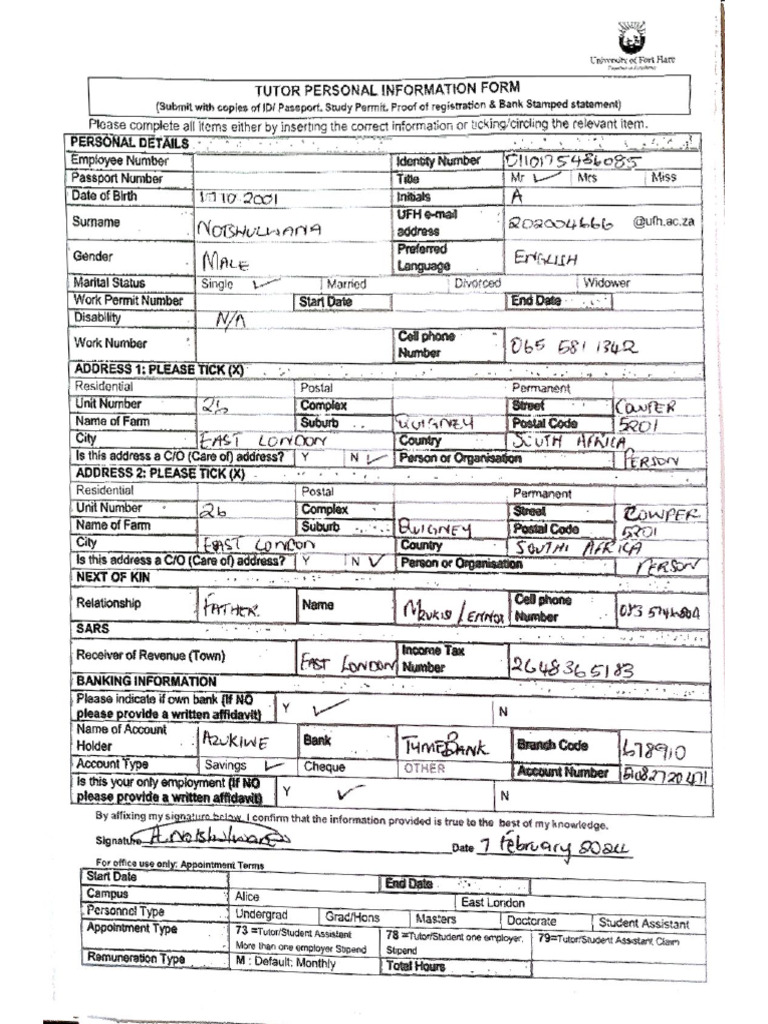 University of Fort Hare
TUTOR PERSONAL INFORMATION FORM
(Submit with copies of ID/ Passport, Study Permit, Proof of registration & Bank Stamped statement)
Please complete all items either by inserting the correct information or ticking/circling the relevant item.
PERSONAL DETAILS
Employee Number Identity Number 0110175486085
Passport Number Title Mr ✓ Mrs Miss
Date of Birth 17 10 2001 Initials A
Surname NOTSHULWANA UFH e-mail address 202004666 @ufh.ac.za
Gender MALE Preferred Language ENGLISH
Marital Status Single ✓ Married Divorced Widower
Work Permit Number Start Date End Date
Disability N/A
Work Number Cell phone Number 065 581 1342
ADDRESS 1: PLEASE TICK (X)
Residential Postal Permanent
Unit Number 26 Complex Street COWPER
Name of Farm Suburb QUIGNEY Postal Code 5201
City EAST LONDON Country SOUTH AFRICA
Is this address a C/O (Care of) address? Y N ✓ Person or Organisation PERSON
ADDRESS 2: PLEASE TICK (X)
Residential Postal Permanent
Unit Number 26 Complex Street COWPER
Name of Farm Suburb QUIGNEY Postal Code 5201
City EAST LONDON Country SOUTH AFRICA
Is this address a C/O (Care of) address? Y N ✓ Person or Organisation PERSON
NEXT OF KIN
Relationship FATHER Name MZUKISI LENNOX Cell phone Number 083
SARS
Receiver of Revenue (Town) EAST LONDON Income Tax Number 2648365183
BANKING INFORMATION
Please indicate if own bank (If NO please provide a written affidavit) Y ✓ N
Name of Account Holder AZUKIWE Bank TYMEBANK Branch Code 678910
Account Type Savings ✓ Cheque OTHER Account Number
Is this your only employment (If NO please provide a written affidavit) Y ✓ N
By affixing my signature below, I confirm that the information provided is true to the best of my knowledge.
Signature A.Notshulwana Date 7 February 2024
For office use only: Appointment Terms
Start Date End Date
Campus Alice East London
Personnel Type Undergrad Grad/Hons Masters Doctorate Student Assistant
Appointment Type 73 =Tutor/Student Assistant More than one employer Stipend 78 =Tutor/Student one employer, Stipend 79=Tutor/Student Assistant Claim
Remuneration Type M : Default: Monthly Total Hours